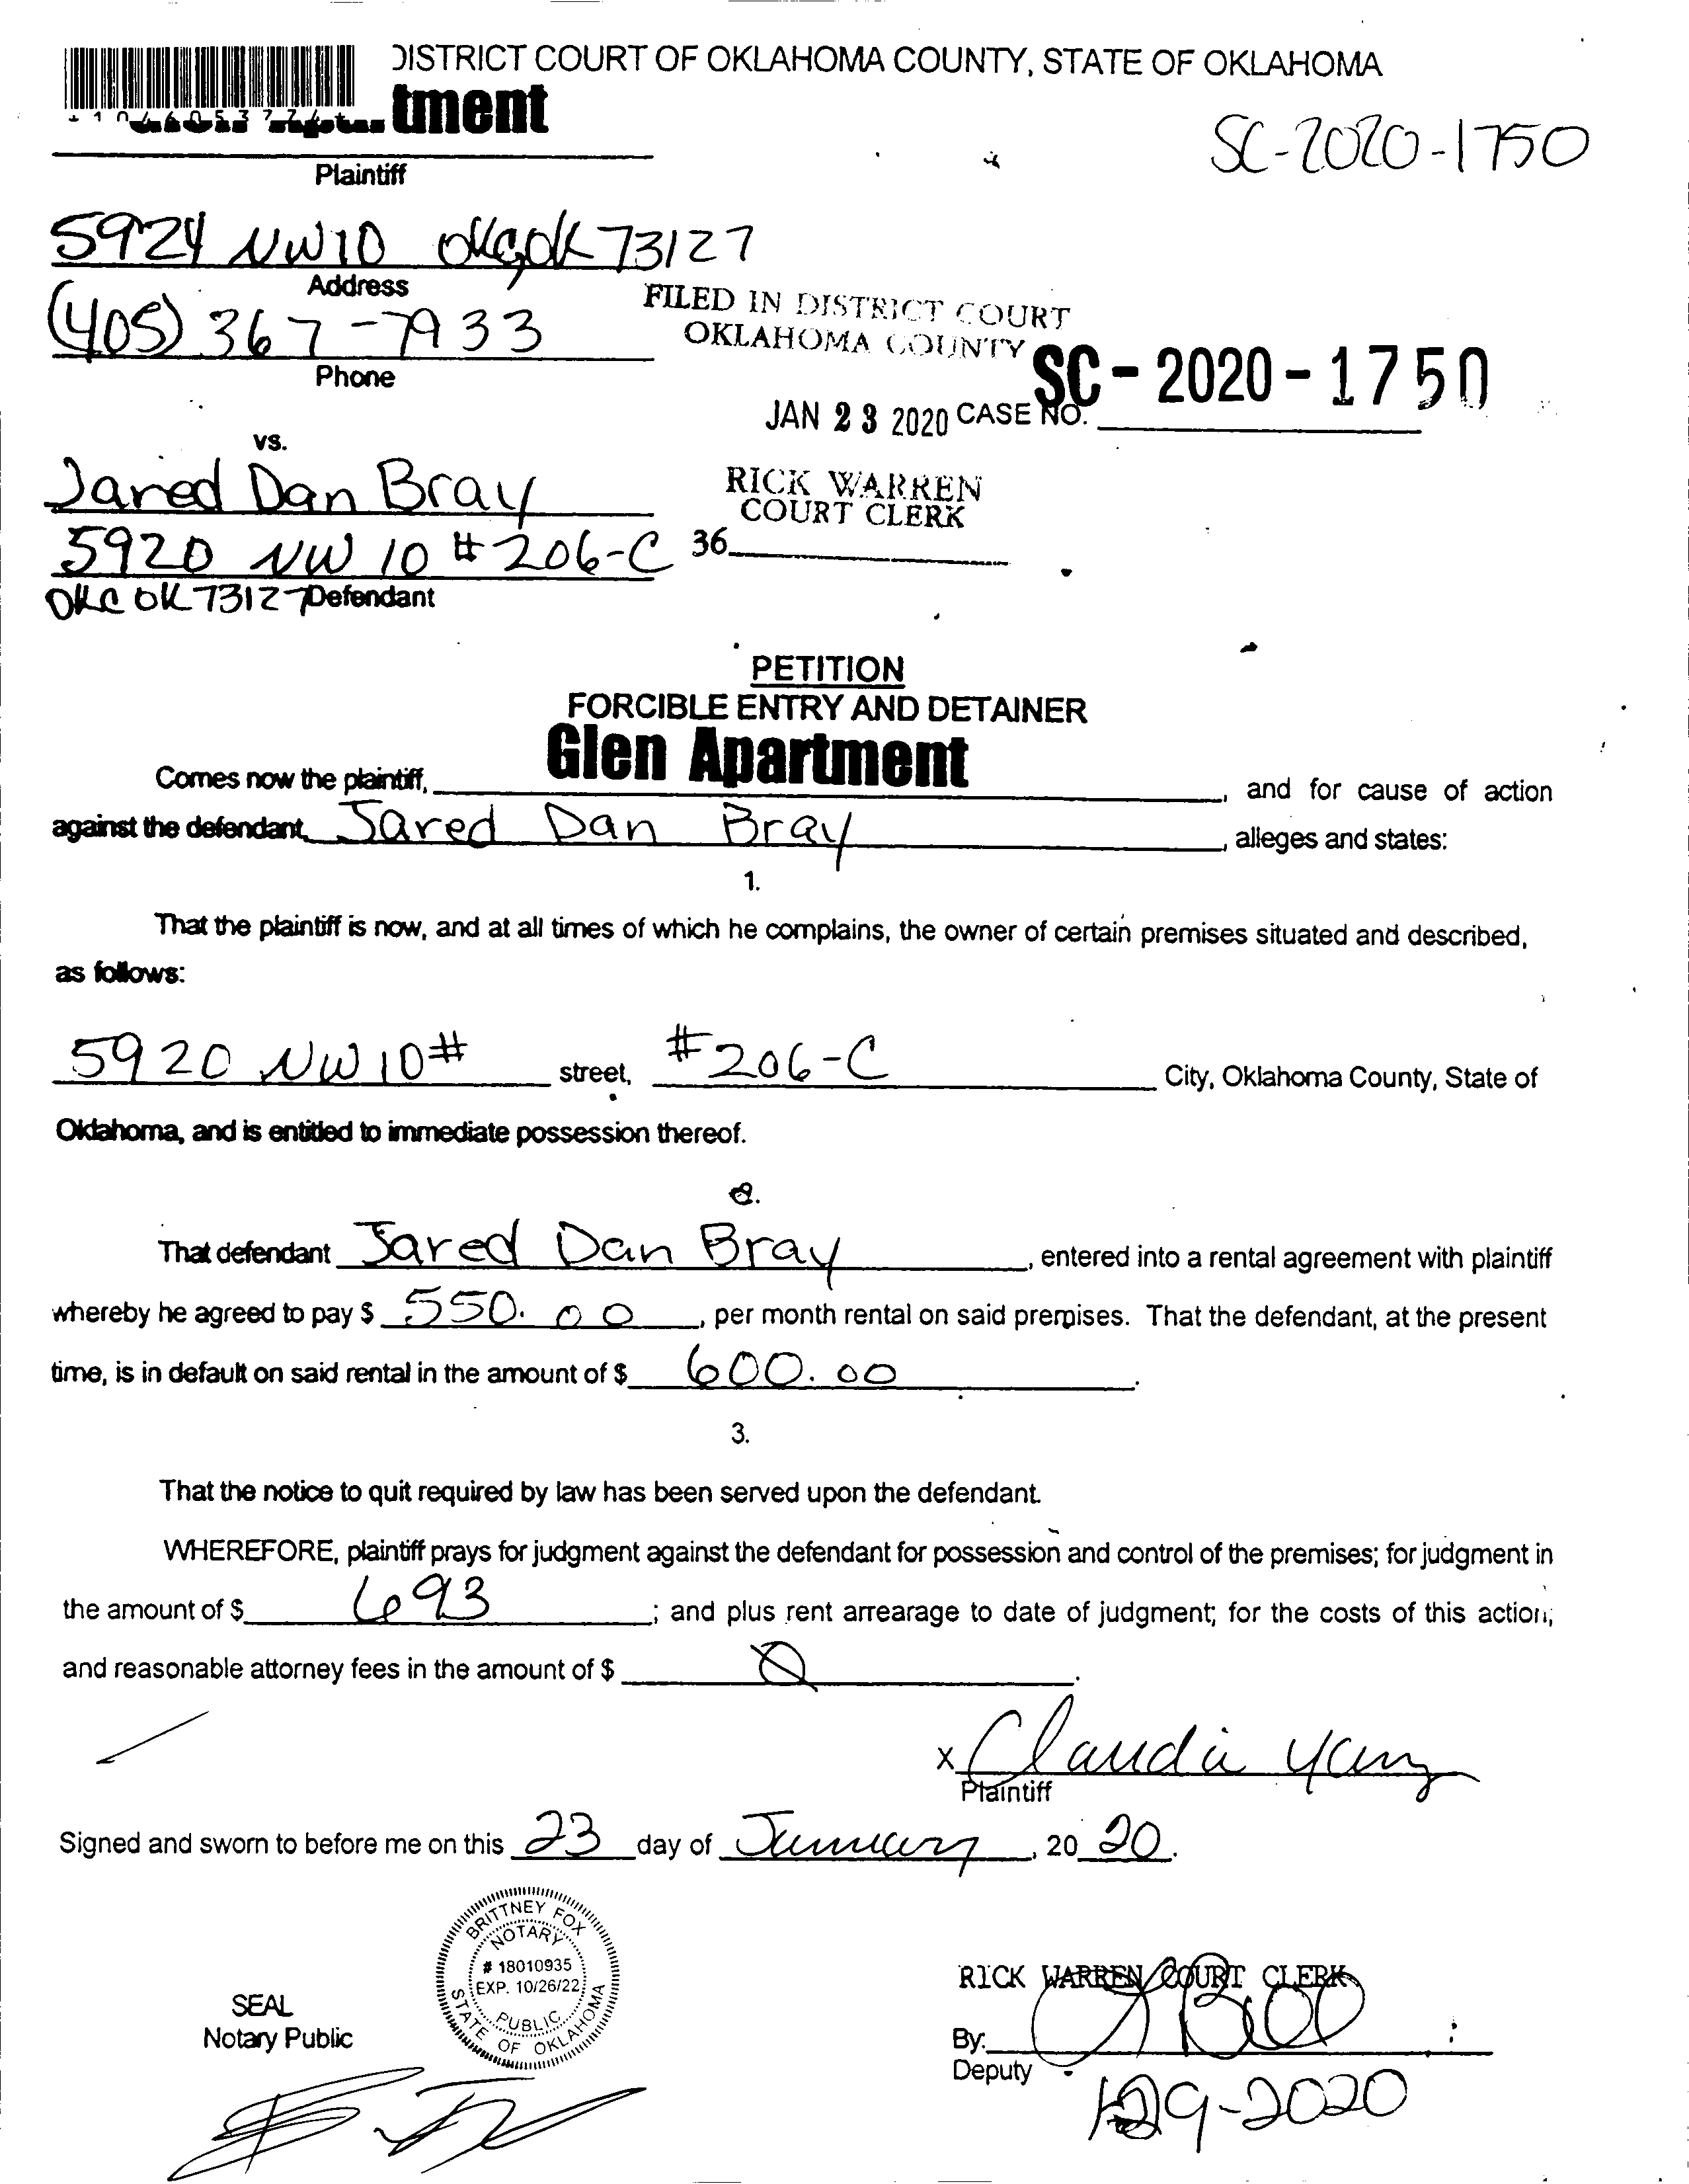 DISTRICT COURT OF OKLAHOMA COUNTY, STATE OF OKLAHOMA
tment
SC-2020-1750
Plaintiff
5924 NW 10 OKC, OK 73127
Address
(405) 367-7933
Phone
FILED IN DISTRICT COURT
OKLAHOMA COUNTY
SC-2020-1750
JAN 23 2020 CASE NO.
vs.
Jared Dan Bray
RICK WARREN
COURT CLERK
5920 NW 10 #206-C
36
OKC OK 73127 Defendant
PETITION
FORCIBLE ENTRY AND DETAINER
Comes now the plaintiff, Glen Apartment, and for cause of action
against the defendant, Jared Dan Bray, alleges and states:
1.
That the plaintiff is now, and at all times of which he complains, the owner of certain premises situated and described,
as follows:
5920 NW 10# street, #206-C City, Oklahoma County, State of
Oklahoma, and is entitled to immediate possession thereof.
2.
That defendant Jared Dan Bray, entered into a rental agreement with plaintiff
whereby he agreed to pay $ 550.00, per month rental on said premises. That the defendant, at the present
time, is in default on said rental in the amount of $ 600.00.
3.
That the notice to quit required by law has been served upon the defendant.
WHEREFORE, plaintiff prays for judgment against the defendant for possession and control of the premises; for judgment in
the amount of $ 693; and plus rent arrearage to date of judgment; for the costs of this action;
and reasonable attorney fees in the amount of $ 0.
x Claudia
Plaintiff
Signed and sworn to before me on this 23 day of January, 20 20.
BRITTNEY FOX
NOTARY
# 18010935
EXP. 10/26/22
PUBLIC
STATE OF OKLAHOMA
SEAL
Notary Public
RICK WARREN COURT CLERK
By:
Deputy